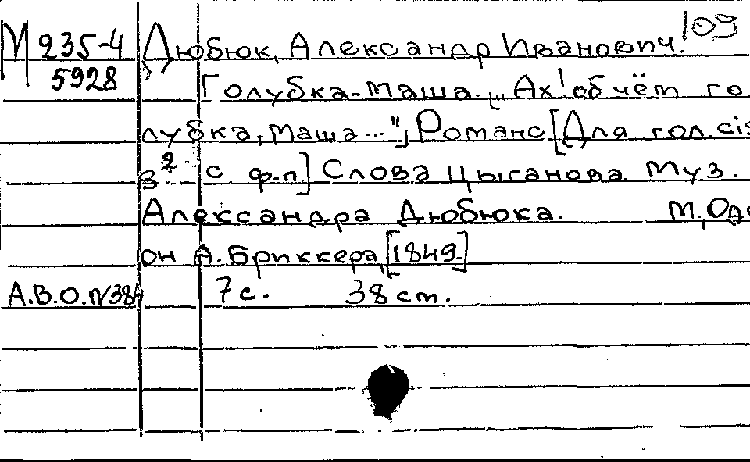 М 235-4 Дюбюк, Александр Иванович. 109
5928 Голубка-Маша. „Ах! об чём го
лубка, Маша...", Романс [Для гол. cis
з² с ф-п] Слова Цыганова Муз.
Александра Дюбюка. М, Оде
он А. Бриккера, [1849]
А.В.О. N 384 7 с. 38 cm.